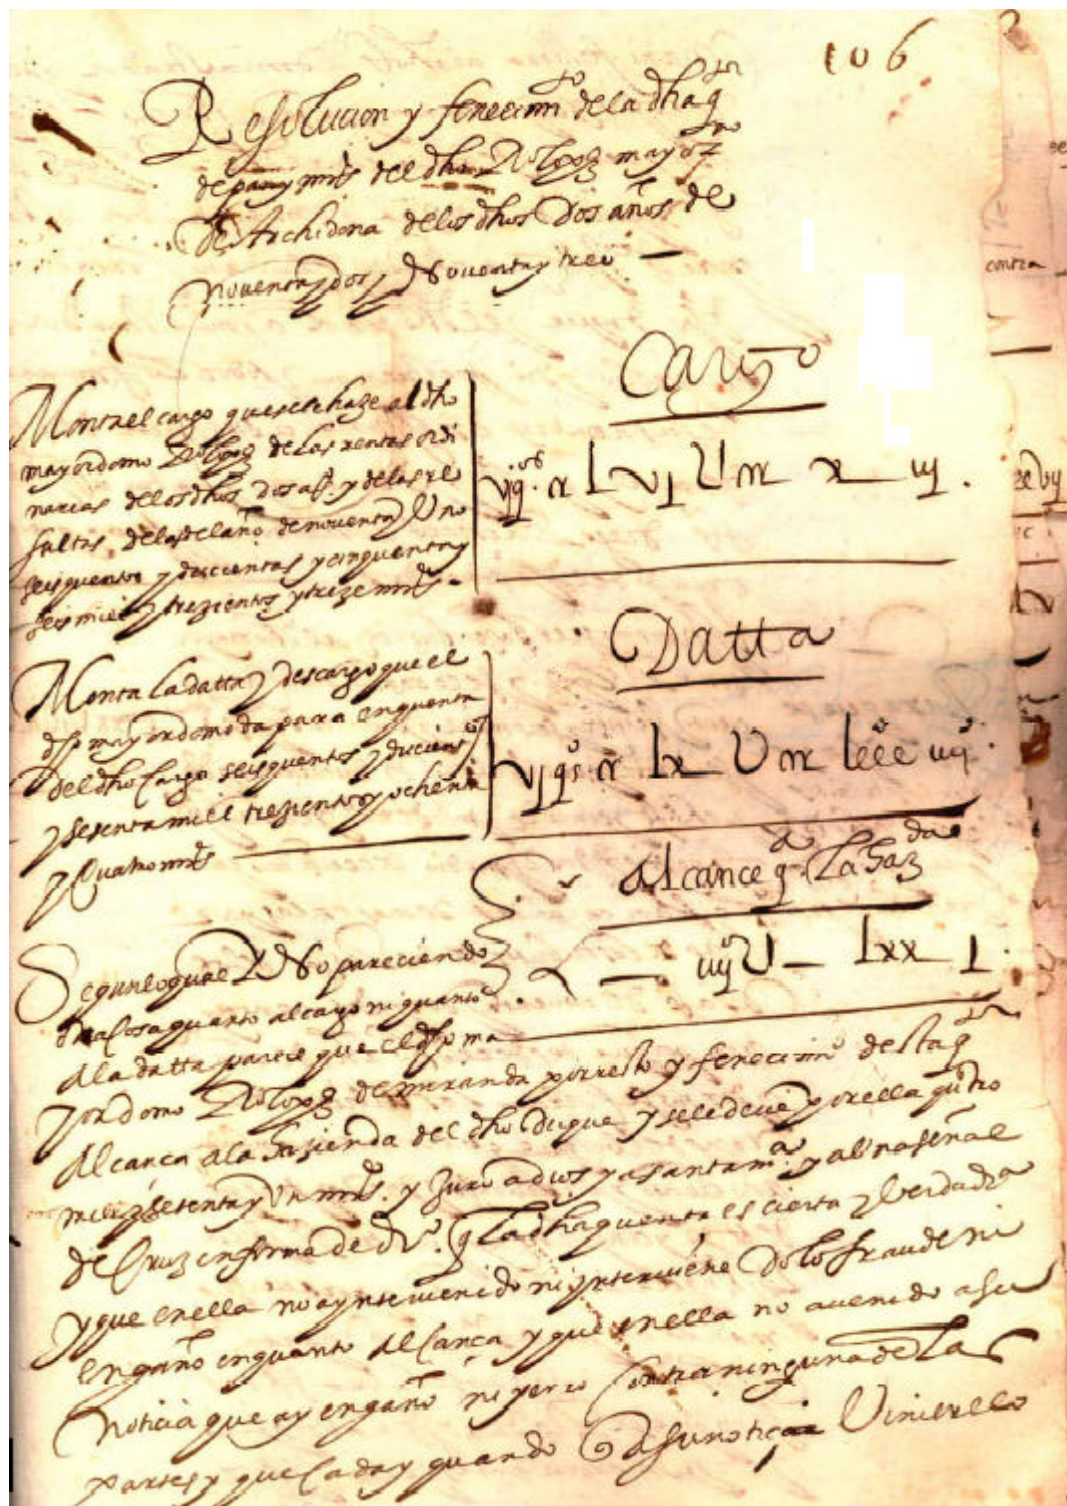 106
Resolucion y fenecimjº de la dha qta
de pan y mrs del dho Rº lopez mayormo
de Archidona de los dhos Dos años de
noventa y dos y de noventa y tres —
Cargo
Monta el cargo que se le haze al dho
mayordomo Rº lopez de las rentas ordi
narias de los dhos dos aºs y de las re
sultas de las del año de noventa y Uno
seis quentos y docientas y cinquenta y
seis mill y trezientos y treze mrs —
vj qºs. cc L vj U ccc x iij.
Datta
Monta la datta y descargo que el
dho mayordomo da para en quenta
del dho Cargo seis quentos y docientos
y sesenta mill trezientos y ochenta
y quatro mrs
vj qºs. cc lx U ccc lxxx iiijº.
Alcance qª la hazda
iiijº U — lxx j.
Segun lo qual Y No pareciendo
otra Cosa quanto al cargo ni quanto
a la datta parece que el dho ma
yordomo Rº lopez de miranda por resto y fenecimjº desta qta
Alcança a la hazienda del dho Duque y se le deve por ella quatro
mill y setenta y Un mrs. y Juro a dios y a santa mª. y a Una señal
de Cruz en forma de drº. q La dha quenta es cierta y Verdadrª
y que en ella no a yntervenido ni ynterviene Dolo fraude ni
engaño en quanto Alcança y que en ella no a venido a su
noticia que ay engaño ni yerro Contra ninguna de La s
partes y que Cada y quando q a su noticia Viniere lo
contra